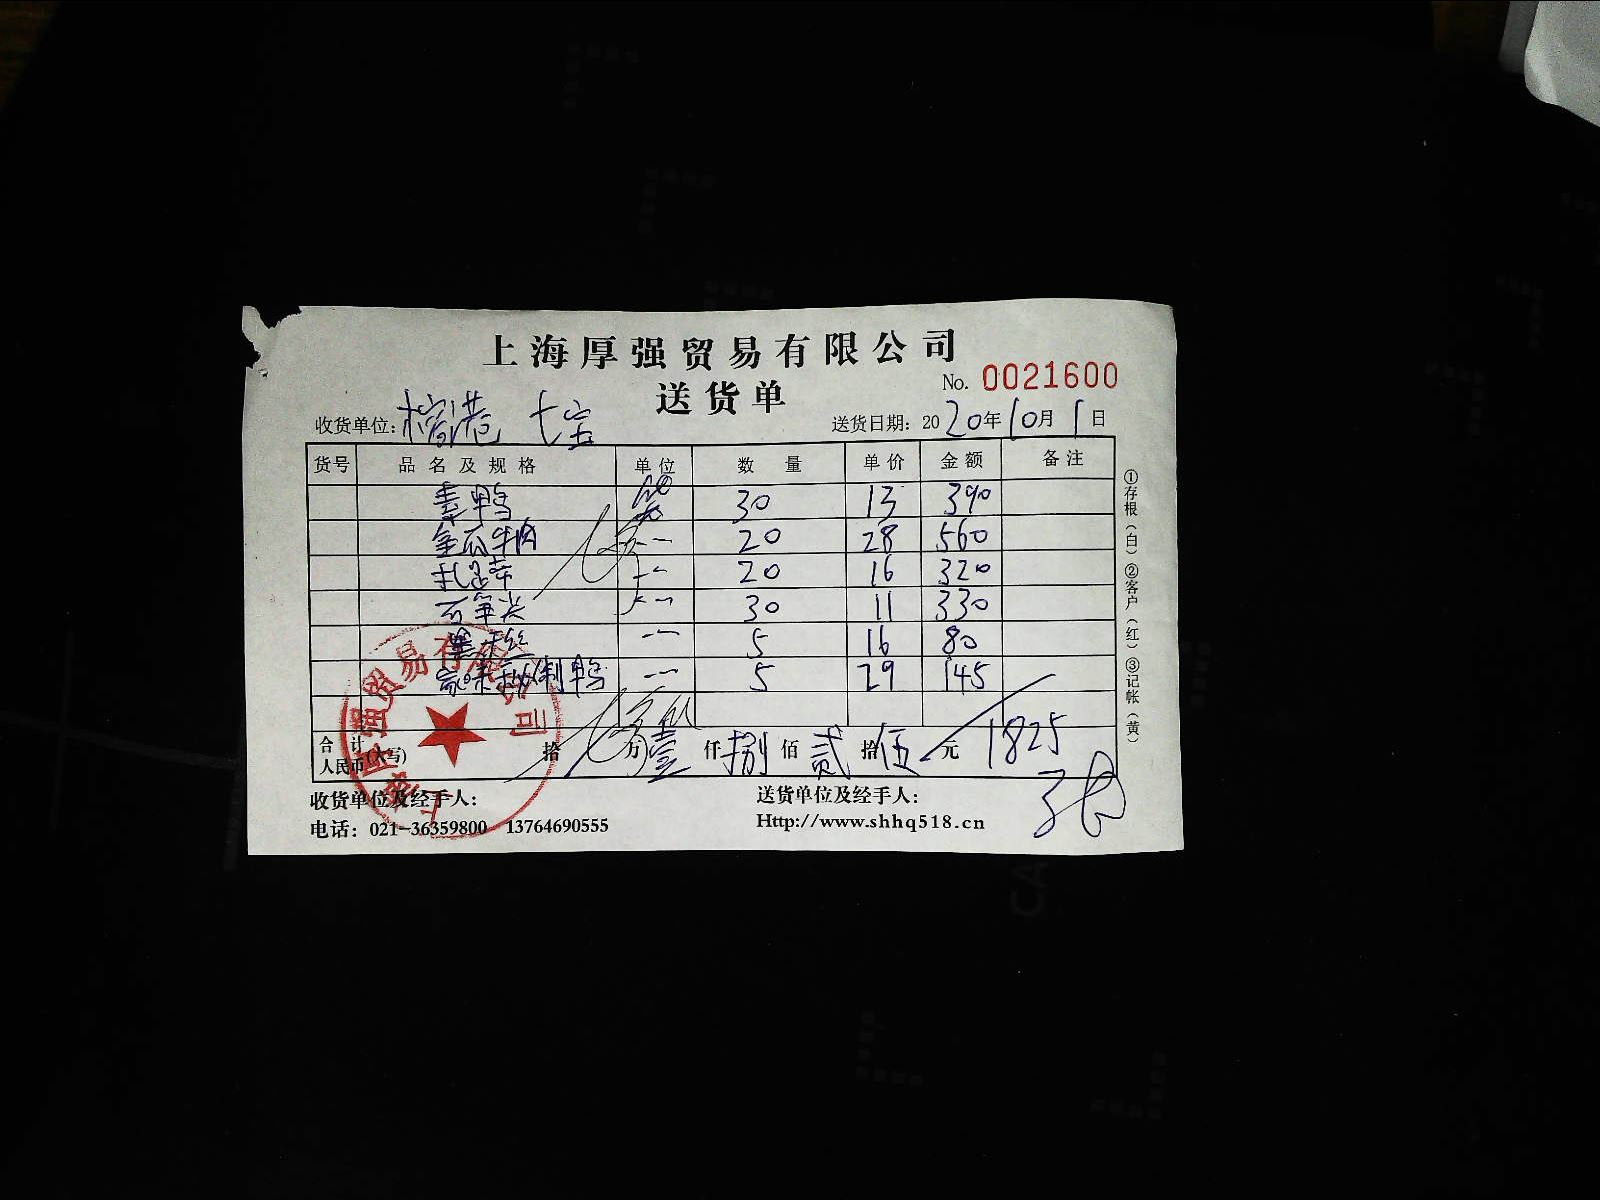 上海厚强贸易有限公司
送货单
No. 0021600
收货单位: 榕港 七宝
送货日期: 2020年10月1日
货号 品名及规格 单位 数量 单价 金额 备注
素鸭 袋 30 13 390
金瓜牛肉 20 28 560
20 16 320
石笋尖 30 11 330
5 16 80
秘制鸭 5 29 145
合计人民币(大写) 拾 万 壹 仟 捌 佰 贰 拾 伍 元 1825
①存根(白)②客户(红)③记帐(黄)
收货单位及经手人:
送货单位及经手人:
电话: 021-36359800 13764690555
Http://www.shhq518.cn